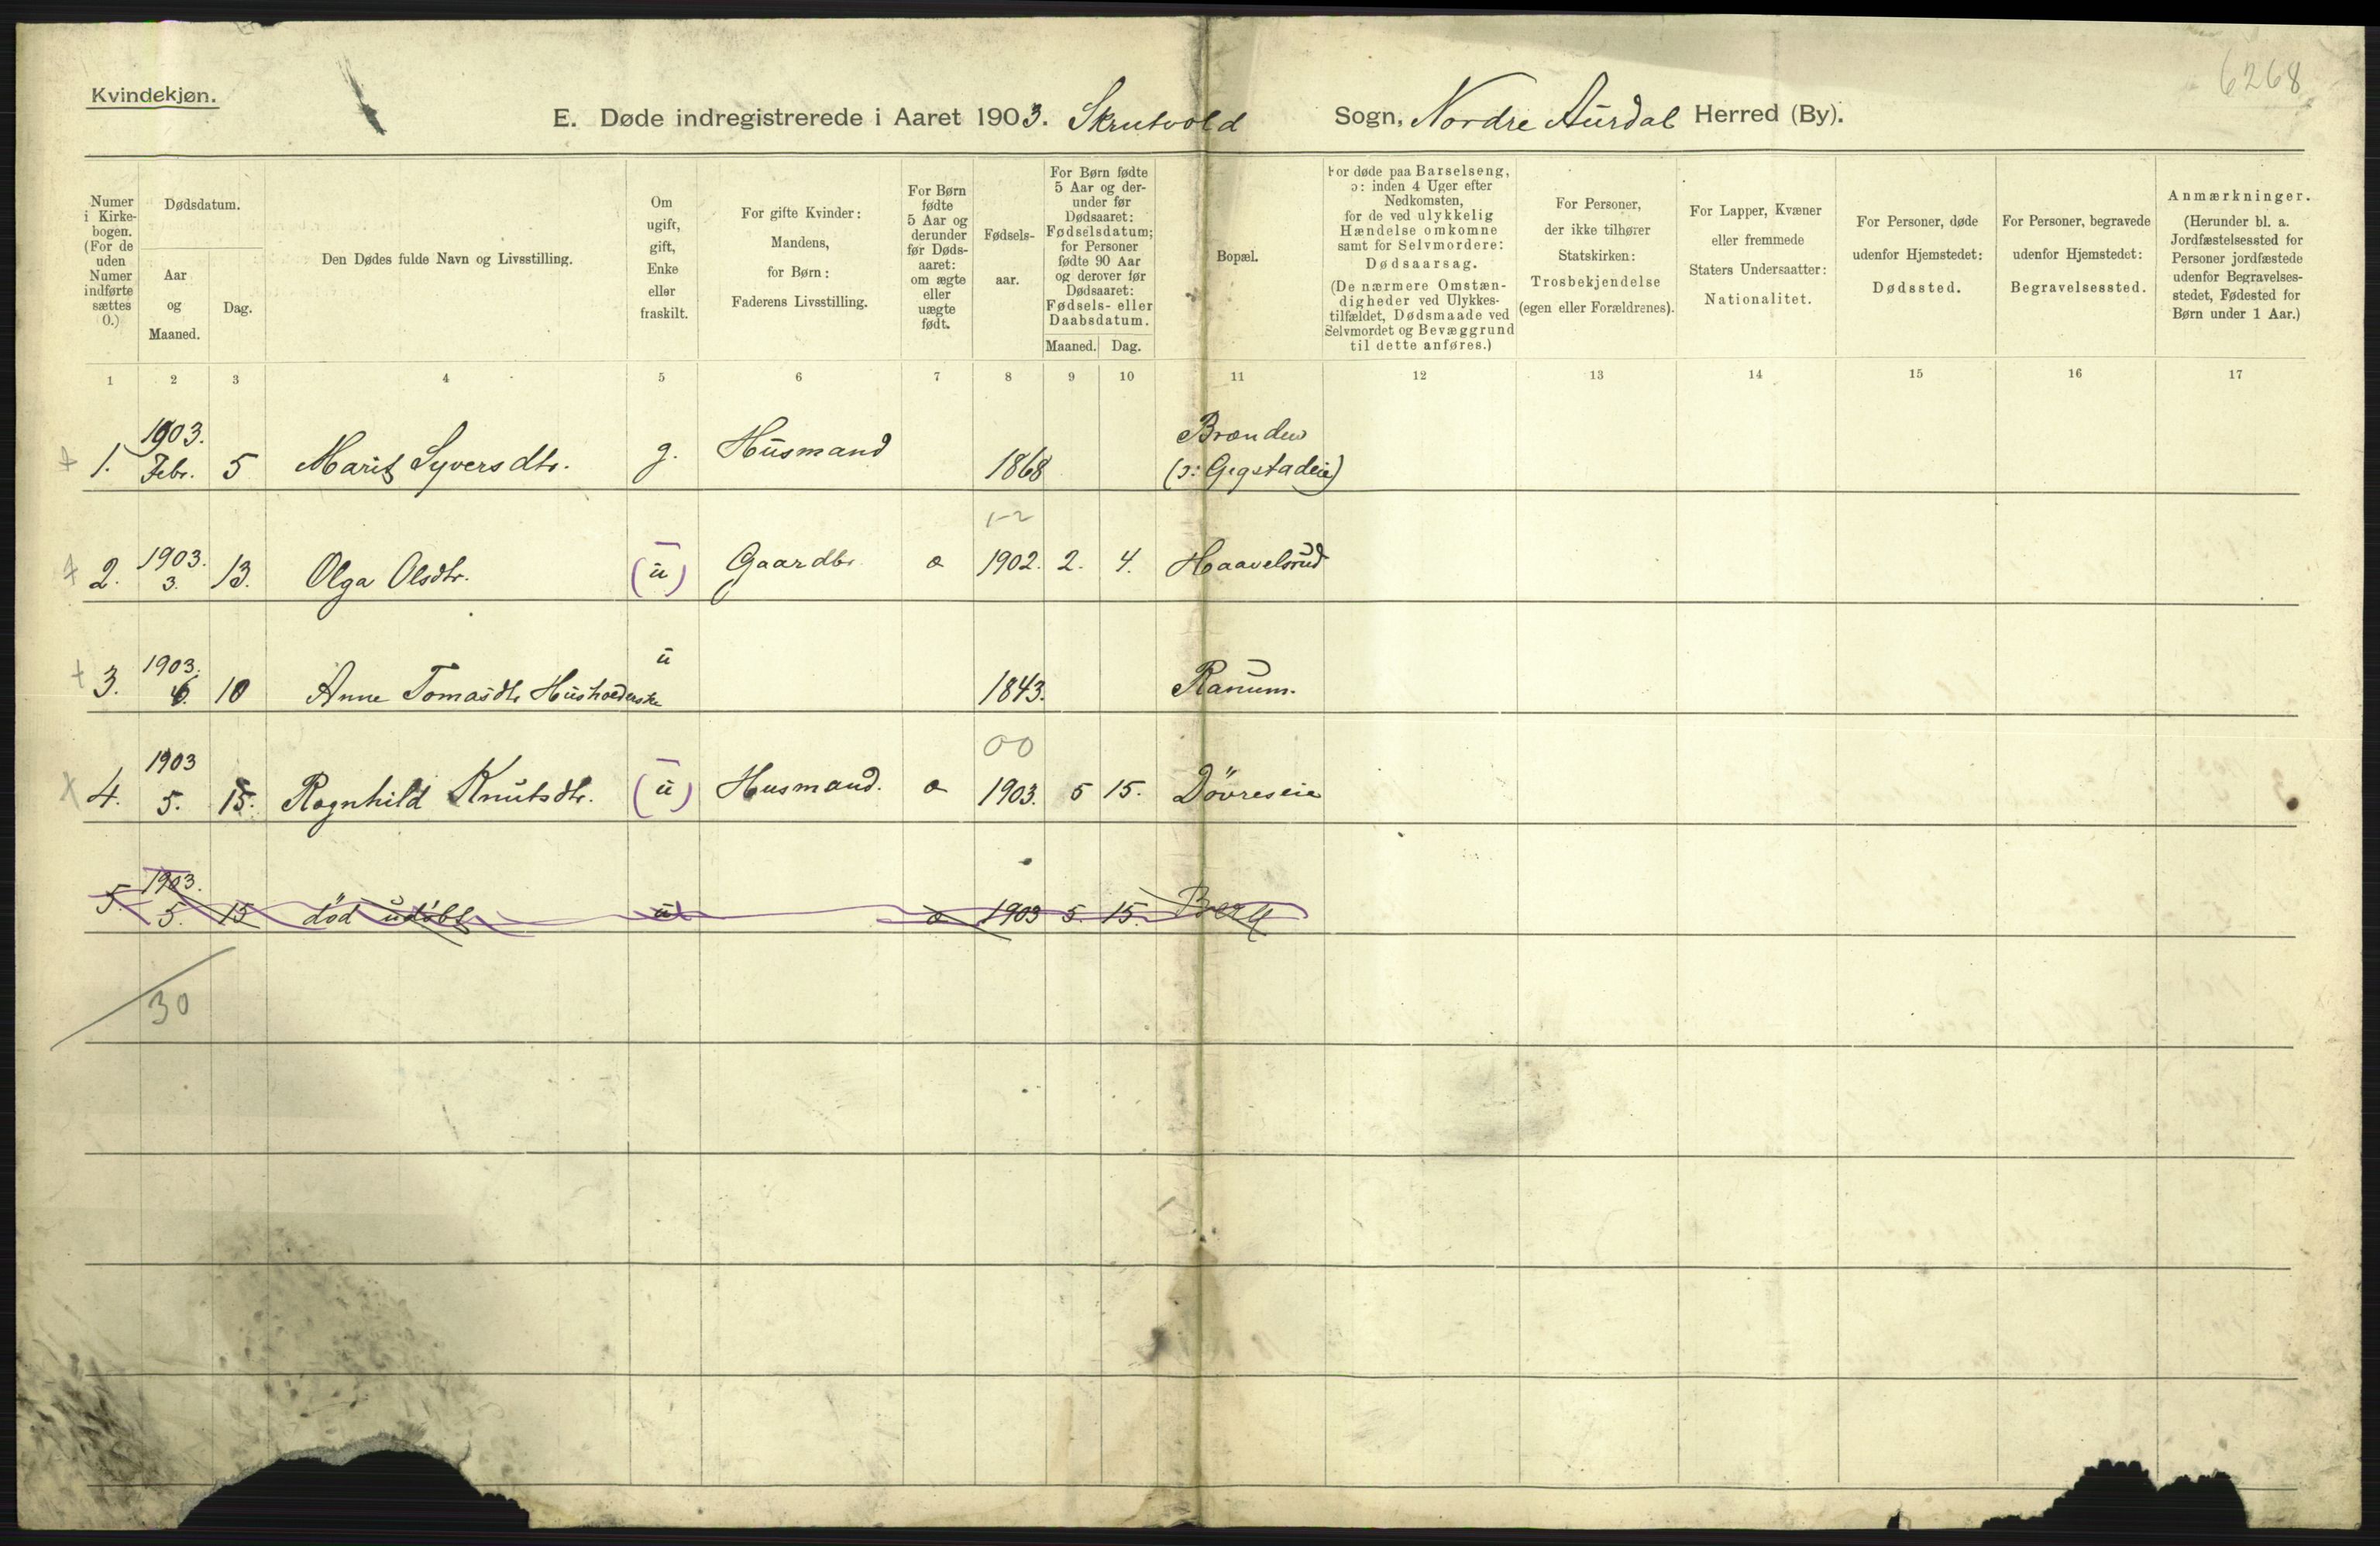 6268
Kvindekjøn.
E. Døde indregistrerede i Aaret 1903. Skrutvold Sogn, Nordre Aurdal Herred (By).
Numer i Kirkebogen. (For de uden Numer indførte sættes 0.)
Dødsdatum.
Aar og Maaned.
Dag.
Den Dødes fulde Navn og Livsstilling.
Om ugift, gift, Enke eller fraskilt.
For gifte Kvinder: Mandens, for Børn: Faderens Livsstilling.
For Børn fødte 5 Aar og derunder før Dødsaaret: om ægte eller uægte født.
Fødselsaar.
For Børn fødte 5 Aar og derunder før Dødsaaret: Fødselsdatum; for Personer fødte 90 Aar og derover før Dødsaaret: Fødsels- eller Daabsdatum.
Maaned. Dag.
Bopæl.
For døde paa Barselseng, ɔ: inden 4 Uger efter Nedkomsten, for de ved ulykkelig Hændelse omkomne samt for Selvmordere: Dødsaarsag. (De nærmere Omstændigheder ved Ulykkestilfældet, Dødsmaade ved Selvmordet og Bevæggrund til dette anføres.)
For Personer, der ikke tilhører Statskirken: Trosbekjendelse (egen eller Forældrenes).
For Lapper, Kvæner eller fremmede Staters Undersaatter: Nationalitet.
For Personer, døde udenfor Hjemstedet: Dødssted.
For Personer, begravede udenfor Hjemstedet: Begravelsessted.
Anmærkninger. (Herunder bl. a. Jordfæstelsessted for Personer jordfæstede udenfor Begravelsesstedet, Fødested for Børn under 1 Aar.)
1 2 3 4 5 6 7 8 9 10 11 12 13 14 15 16 17
1. 1903. Febr. 5 Marit Syversdtr. g. Husmand 1868 (ɔ: Gigstadeie)
2. 1903. 3. 13. Olga Olsdtr. (u) Gaardbr. a 1902. 2. 4. Haavelsrud
3. 1903. 10 Anne Tomasdtr Husholderske u 1843. Ranum.
00
4. 1903 5. 15. Ragnhild Knutsdtr. (u) Husmand. a 1903. 5 15. Døvreseie
5. 1903. 5. 15 død udøbt u a 1903 5. 15. Berg
30